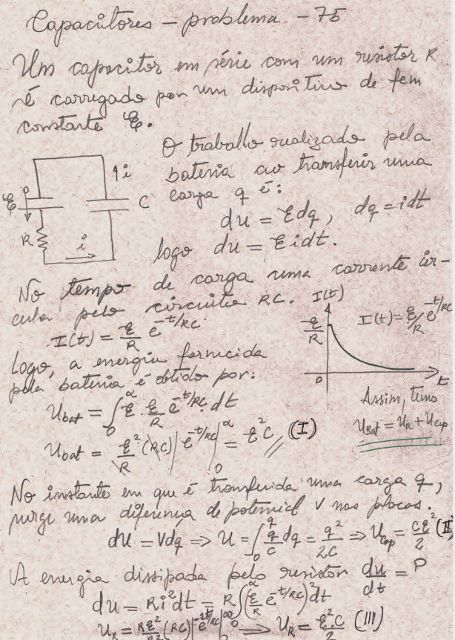 Capacitores - problema - 75
Um capacitor em série com um resistor R
é carregado por um dispositivo de fem
constante ℰ.
O trabalho realizado pela
bateria ao transferir uma
carga q é:
du = ℰdq, dq = idt
logo du = ℰidt.
ℰ
R
i
i
C
No tempo de carga uma corrente cir-
cula pelo circuito RC.
I(t) = ℰ/R e^{-t/RC}.
I(t)
ℰ/R
I(t) = ℰ/R e^{-t/RC}
0
t
Logo, a energia fornecida
pela bateria é obtido por:
U_bat = ∫_0^∝ ℰ ℰ/R e^{-t/RC} dt
U_bat = -ℰ²/R (RC) | e^{-t/RC} |_0^∝ = ℰ²C // (I)
Assim, temos
U_Bat = U_R + U_Cap
No instante em que é transferida uma carga q,
surge uma diferença de potencial V nas placas.
du = Vdq ⇒ U = ∫_0^q q/C dq = q²/2C ⇒ U_cap = Cℰ²/2 (II)
A energia dissipada pelo resistor du/dt = P
du = Ri²dt = R ∫_0^∝ (ℰ/R e^{-t/RC})² dt
⇒ U_R = ℰ²C/2 (III)